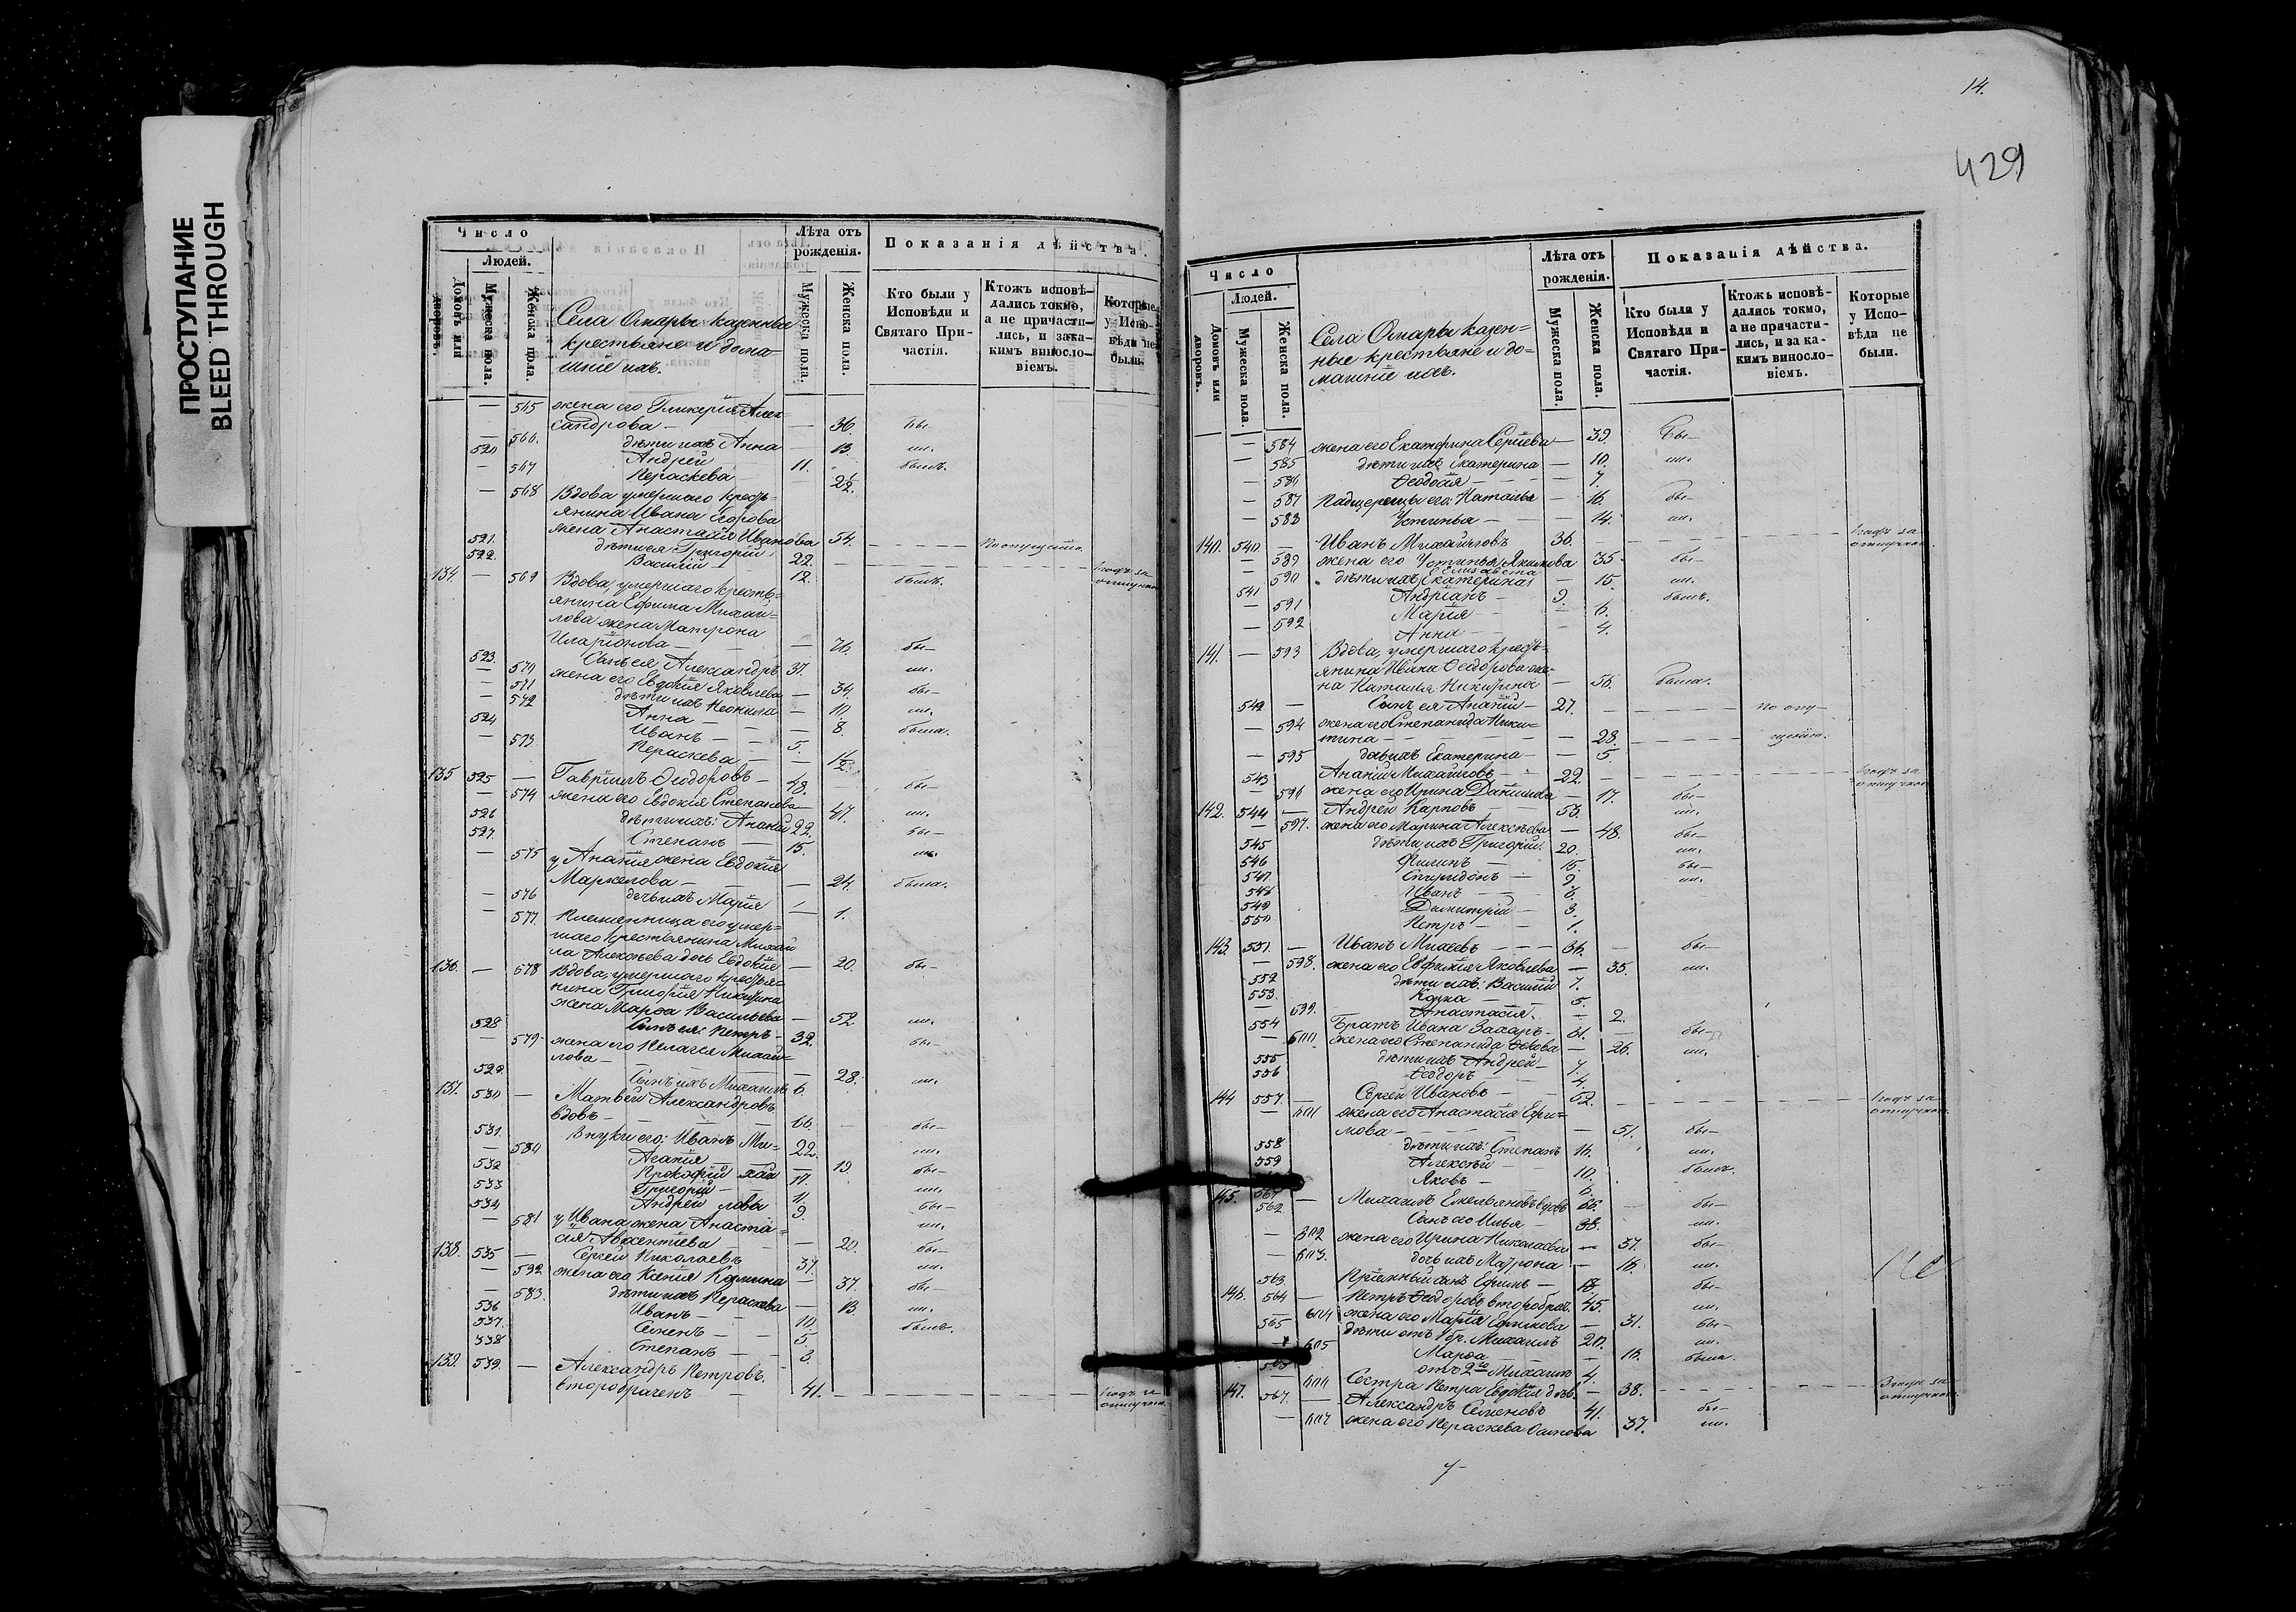 ПРОСТУПАНИЕ
BLEED THROUGH
Число
Людей.
Домовъ или дворовъ.
Мужеска пола.
Женска пола.
Села Омары казенные
крестьяне и дома-
шніе ихъ.
Лѣта отъ
рожденія.
Мужеска пола.
Женска пола.
Показанія дѣйства.
Кто были у
Исповѣди и
Святаго При-
частія.
Ктожъ исповѣ-
дались токмо,
а не причасти-
лись, и зака-
кимъ винослo-
віемъ.
Которые
у Испо-
вѣди не
были.
— 565 жена его Гликерія Алек-
сандрова — — 36. бы-
— 566. дѣти ихъ Анна — 13. ли.
520 — Андрей 11. былъ.
— 567 Параскева —
— 568 Вдова умершаго кресть-
янина Ивана Егорова
жена Анастасія Иванова 54. По опущенію.
521. дѣти ея Григорій 22.
522. Василій 12. былъ.
134. — 569 Вдова, умершаго кресть-
янина Ефима Михаи-
лова жена Матрона
Иларіонова — бы-
523. Сынъ ея Александръ 37. ли.
— 570 жена его Евдокія Яковлева — 34. бы-
— 571 дѣти ихъ Неонила — 10. ли.
— 572 Анна — 8. была.
524 Иванъ — 5.
— 573 Параскева —
135 525 — Гавріилъ Ѳеодоровъ — 48. бы-
— 574 жена его Евдокія Степанова 47. ли.
526 дѣти ихъ: Ананій 22. бы-
527. Степанъ — 15. ли.
— 575 у Ананія жена Евдокія
Маркелова — 24. была.
— 576 дочь ихъ Марія — 1.
— 577. Племянница его умер-
шаго крестьянина Михаи
ла Алексѣева дочь Евдокія — 20. бы-
136. — 578 Вдова, умершаго крестья-
нина Григорія Никитина
жена Марѳа Васильева — 52. ли.
528 Сынъ ея: Петръ — 32. бы-
— 579 жена его Пелагія Михаи-
лова — 28. ли.
529. Сынъ ихъ Михаилъ 6.
137. 530 — Матвей Александровъ
вдовъ — 66. бы-
531. внуки его: Иванъ Ми- 22. ли.
— 580 Агапія — 19. бы-
532 Прокофій хаи 17. ли.
533 Григорій — 11. бы-
534 Андрей лова 9. ли.
— 581 у Ивана жена Анаста-
сія Авксентіева — 20. бы-
138. 535 — Сергей Николаевъ 37. ли.
— 582 жена его Ксенія Карпина — 37. бы-
— 583. дѣти ихъ Параскева — 13 ли.
536 Иванъ — 10. былъ.
537. Семенъ — 5.
538 Степанъ — 3.
139. 539. — Александръ Петровъ.
второбраченъ — 41.
14.
429
Число
Людей.
Домовъ или дворовъ.
Мужеска пола.
Женска пола.
Села Омары казен-
ные крестьяне и до-
машніе ихъ.
Лѣта отъ
рожденія.
Мужеска пола.
Женска пола.
Показанія дѣйства.
Кто были у
Исповѣди и
Святаго При-
частія.
Ктожъ исповѣ-
дались токмо,
а не причасти-
лись, и за ка-
кимъ винослo-
віемъ.
Которые
у Испо-
вѣди не
были.
— 584 жена его Екатерина Сергіева — 39. бы-
— 585 дѣти ихъ Екатерина — 10. ли.
— 586 Ѳеодосія — 7.
— 587 Падчерицы его: Наталья — 16. бы-
— 588 Устинья — 14. ли.
140. 540 — Иванъ Михайловъ 36. 1 годъ за отлучкою.
— 589 жена его Устинья Якимова 35. бы-
Елизавета
— 590 дѣти ихъ Екатерина — 15. ли.
541 Андріанъ — 9. былъ.
— 591 Марія — 6.
— 592 Анна — 4.
141. — 593 Вдова, умершаго кресть-
янина Ивана Ѳеодорова же-
на Наталья Никитина — 56. была.
542 — Сынъ ея Ананій — 27. По опу-
— 594 жена его Степанида Ники-
тина — 28. щенію.
— 595 дочь ихъ Екатерина — 5.
543 Ананій Михайловъ — 22. 1 годъ за отлучкою.
— 596 жена его Ирина Данилова — 17. бы-
142. 544 — Андрей Карповъ — 53. ли.
— 597. жена его Марина Алексѣева — 48. бы-
545 дѣти ихъ Григорій 20. ли.
546 Филипъ — 15. бы-
547 Спиридонъ — 9. ли.
548 Иванъ — 6.
549 Димитрій — 3.
550 Петръ — 1.
143. 551. — Иванъ Михеевъ — 36. бы-
— 598. жена его Евфимія Яковлева — 35. ли.
552 дѣти ихъ: Василій 7.
553. Козма — 5.
— 599. Анастасія. — 2.
554 Братъ Ивана Захаръ — 31. бы-
— 600 жена его Степанида — 26. ли.
555 дѣти ихъ Андрей — 7.
556 Ѳеодоръ — 4.
144 557. — Сергей Ивановъ — 52. 1 годъ за отлучкою.
— 601 жена его Анастасія Ефи-
мова — 51. бы-
558 дѣти ихъ: Степанъ 16. ли.
559 Алексѣй — 10. былъ.
Яковъ — 6.
145. 561 — Михаилъ Емельяновъ вдовъ 66. бы-
562 Сынъ его Илья — 38. ли.
— 602 жена его Ирина Николаева — 37. бы-
— 603. дочь ихъ Матрона — 16. ли.
563. Пріемный сынъ Ефимъ — бы-
146. 564 — Петръ Ѳеодоровъ второбрач. 45. ли.
— 604 жена его Марія Ефимова — 31. бы-
565 дѣти отъ 1 бр. Михаилъ 20. ли.
605 Марѳа — 16. была.
отъ 2го Михаилъ 4.
— 606 Сестра Петра Евдокія дѣв. — 38.
147. 567. — Александръ Семеновъ 41. бы-
— 607 жена его Параскева Осипова 37. ли.